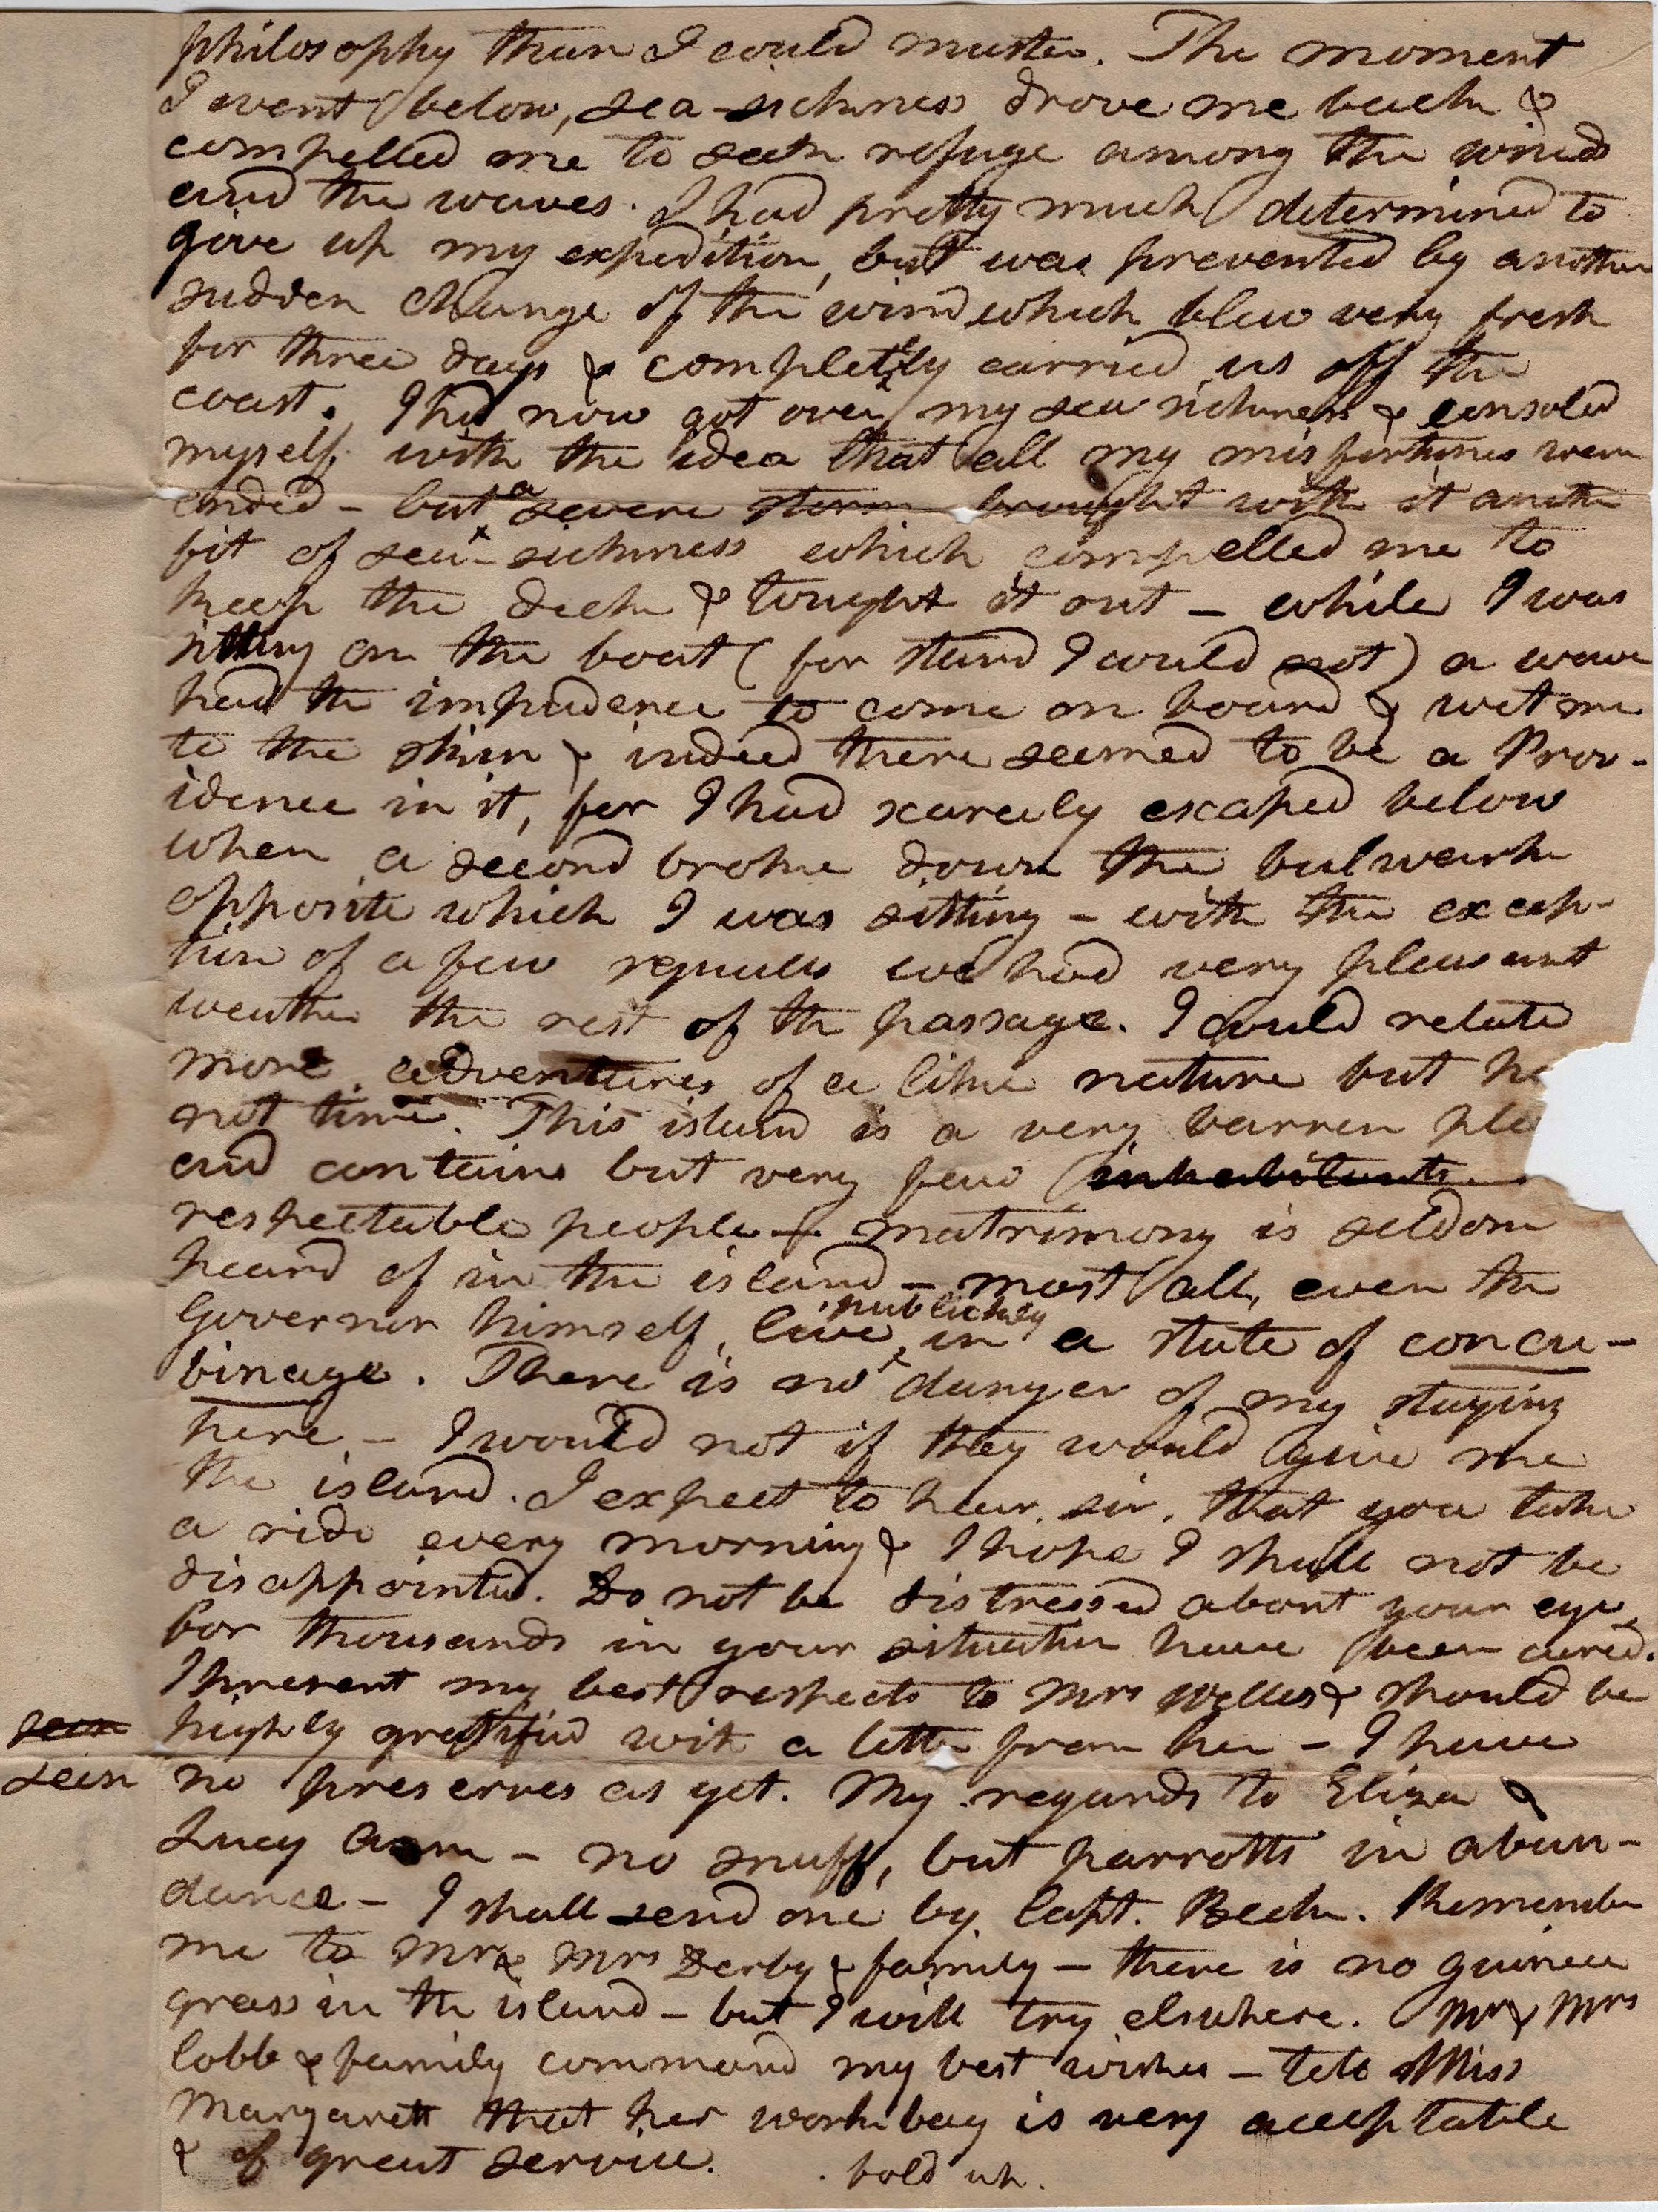 philosophy than I could muster. The moment
I went below, sea-sickness drove me back &
compelled me to seek refuge among the winds
and the waves. I had pretty much determined to
give up my expedition, but was prevented by another
sudden change of the wind which blew very fresh
for three days & completely carried us off the
coast. I had now got over my sea sickness & consoled
myself with the idea that all my misfortunes were
ended - but a severe storm brought with it another
fit of sea-sickness which compelled me to
keep the deck & tought it out - while I was
sitting on the boat (for stand I could not) a wave
had the impudence to come on board & wet me
to the skin & indeed there seemed to be a Prov-
idence in it, for I had scarcely escaped below
when a second broke down the bulwark
opposite which I was sitting - with the excep-
tion of a few squalls we had very pleasant
weather the rest of the passage. I could relate
more adventures of a like nature but ha
not time. This island is a very barren pla
and contains but very few inhabitants
respectable people - matrimony is seldom
heard of in the island - most all, even the
Governor himself, live publickly in a state of concu-
binage. There is no danger of my staying
here - I would not if they would give me
the island. I expect to hear, sir, that you take
a ride every morning & I hope I shall not be
disappointed. Do not be distressed about your eye,
for thousands in your situation have been cured.
I present my best respects to Mrs Welles & should be
highly gratified with a letter from her - I have
seen
seen no preserves as yet. My regards to Eliza &
Lucy Ann - no snuff, but parrotts in abun-
dance - I shall send one by Capt. Beck. Remember
me to Mr & Mrs Derby & family - there is no guinea
grass in the island - but I will try elsewhere. Mr & Mrs
Cobb & family command my best wishes - tell Miss
Margarett that her work bag is very acceptable
& of great service. hold up.